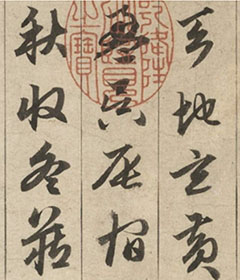 天地玄黃
盈昃辰宿
秋收冬藏